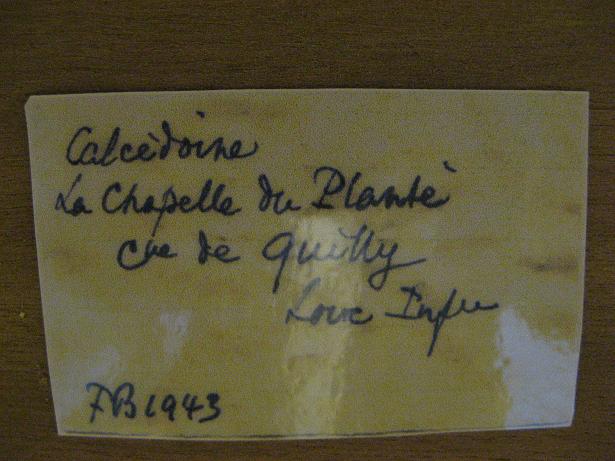 Calcédoine
La Chapelle du Planté
Cne de Quilly
Loire Infre
FB1943